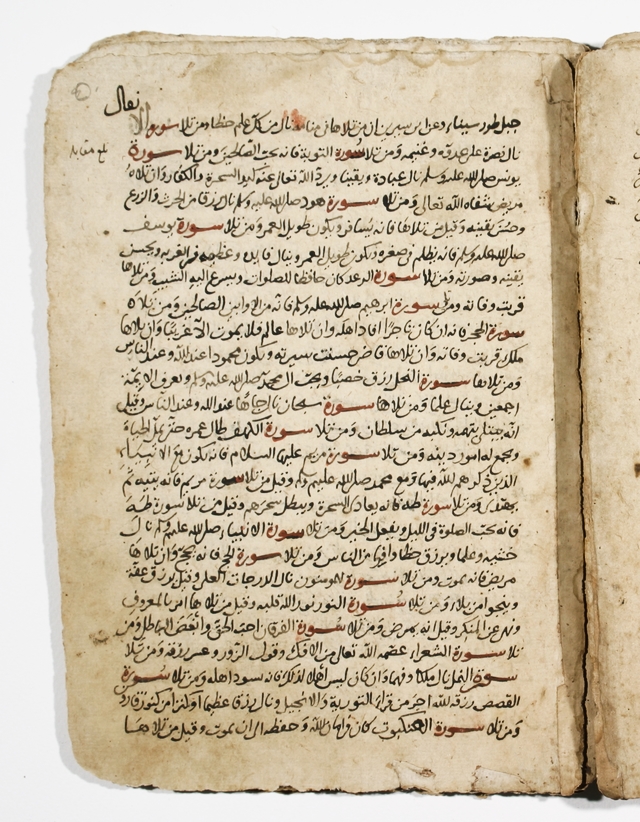 تعالى
جبل طور سيناء وعن ابن سيرين ان من تلاها في منامه نال من كل علم حظا ومن تلا سورة الا
نال نصرة على عدوه وغنيمه ومن تلا سورة التوبة فانه يحب الصالحين ومن تلا سورة
بلغ مقابله
يونس صلى الله عليه وسلم نال عبادة ويقينا ويرد الله تعالى عنه كيد السحرة والكفار وان تلاه
مريض شفاه الله تعالى ومن تلا سورة هود صلى الله عليه وسلم نال رزقا من الحرث والزرع
وحسن يقينه وقيل من تلاها فانه يسافر ويكون طويل العمر ومن تلا سورة يوسف
صلى الله عليه وسلم فانه يظلم في صغره ويكون طويل العمر وينال في الغربه ويحسن
يقينه وصورته ومن تلا سورة الرعد كان حافظا للصلوات ويسرع اليه الشيب ومن تلاها
قربت وفاته ومن سورة ابرهيم صلى الله عليه وسلم فانه من الصالحين ومن تلاه
سورة الحجر فانه ان كان تاجرا افاد اهله وان تلاها عالم فلا يموت الا غريبا وان تلاها
ملك قربت وفاته وان تلاها قاض حسنت سيرته ويكون محمودا عند الله وعند الناس
ومن تلا سورة النحل رزق ويحب آل محمد صلى الله عليه وسلم ويعرف الايمة
اجمعين وينال علما ومن تلا سورة سبحان نال جاها عند الله وعند الناس وقيل
انه يبتلى بتهمه ونكبه من سلطان ومن تلا سورة الكهف طال عمره حتى يمل الحياة
ومن تلا سورة مريم عليها السلام فانه يكون مع الانبياء
الذين ذكرهم الله فيها ومع محمد صلى الله عليهم وسلم وقيل من تلا سورة مريم فانه يتيه ثم
يهتدى ومن تلا سورة طه فانه يعادى السحرة ويبطل سحرهم وقيل من تلا سورة طه
فانه يحب الصلوة في الليل ويفعل الخير ومن تلا سورة الانبياء صلى الله عليهم وسلم نال
خشيه وعلما ويرزق حظا وافيا من الناس ومن تلا سورة الحج فانه يحج وان تلاها
مريض فانه يموت ومن تلا سورة المومنون نال الدرجات العلى وقيل يرزق عفة
وينجو من بلاء ومن تلا سورة النور نور الله قلبه وقيل من تلاها امر بالمعروف
ونهى عن المنكر وقيل انه يمرض ومن تلا سورة الفرقان احب الحق وابغض الباطل ومن
تلا سورة الشعراء عصمه الله تعالى من الافك وقول الزور وعسر رزقه ومن تلا
سورة النمل نال ملكا وفهما وان كان ليس اهلا لذلك فانه يسود اهله ومن تلا سورة
القصص رزقه الله اجر من قرا التورية والانجيل ونال رزقا عظيما او كنزا من كنوز قارون
ومن تلا سورة العنكبوت كان في امان الله وحفظه الى ان يموت وقيل من تلاها